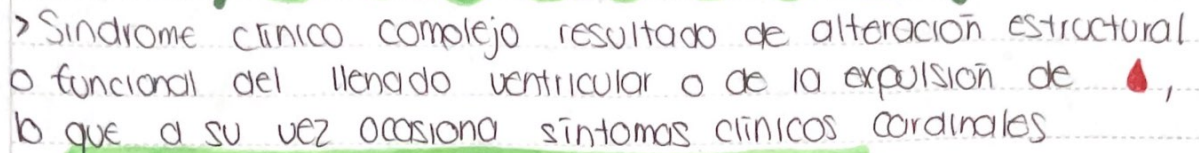 > Síndrome clínico complejo resultado de alteración estructural
o funcional del llenado ventricular o de la expulsión de 🩸,
lo que a su vez ocasiona síntomas clínicos cardinales